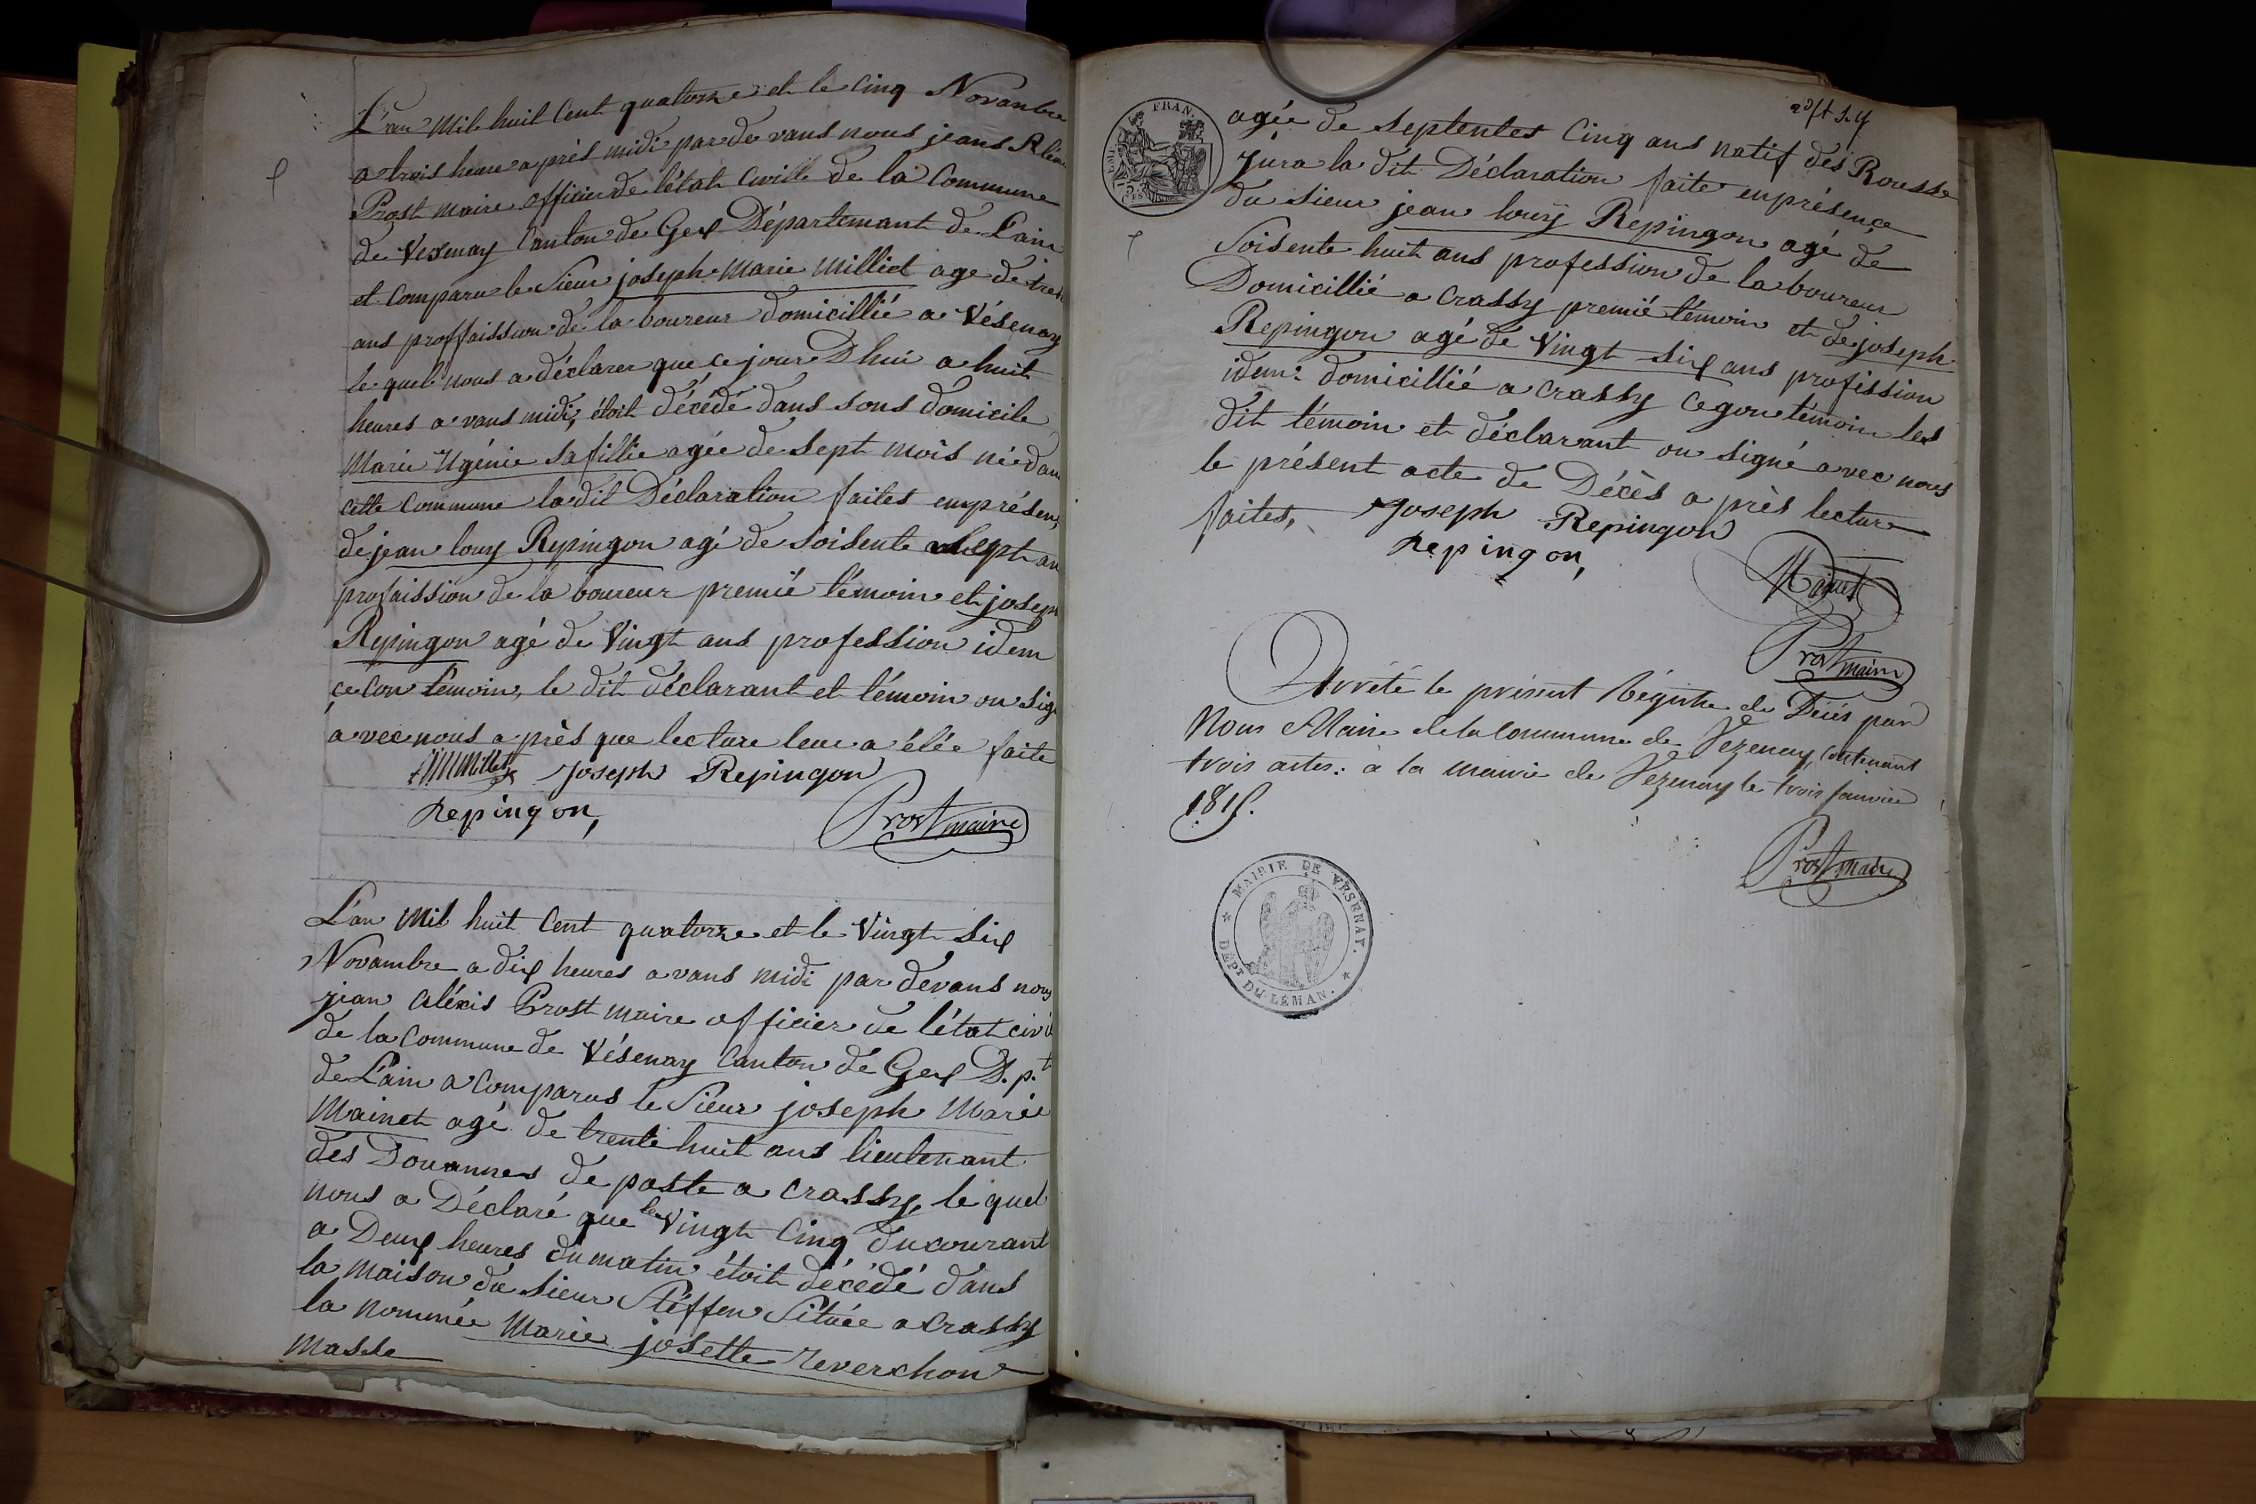 L'an mil huit Cent quatorze et le Cinq Novanbre
a trois heure après midi par de vans nous jeans
Prost maire officier de l'état Civille de la Commune
de Vesenay Canton de Gex Départemant de L'ain
et Comparu le Sieur joseph Marie Milliet age de
ans proffaission de la boureur domicillié a Vésenay
le quel nous a déclarer que ce jour D'hui a huit
heures a vans midi, étoit décédé dans sons domicile
Marie Ugénie sa fillie agée de sept mois née dan
cette Commune la dit Déclaration faites emprésen
de jean louy Repingon agé de soisente sept an
profaission de la boureur premié témoin et joseph
Repingon agé de Vingt ans profession idem
çe Con témoin, le dit déclarant et témoin on sig
a vec nous a près que lecture leur a élée faite
JMMilliet Joseph Repingon
repingon,
Prost maire
L'an mil huit Cent quatorze et le Vingt Six
Novambre a dix heures a vans midi par devans nous
jean aléxis Prost maire officier de l'état civil
de la Commune de Vésenay Canton de Gex D.p.t
de L'ain a Comparus le Sieur joseph Marie
Mainet agé de trente huit ans lieutenant
des Douannes de poste a Crassy, le quel
nous a Déclaré que le Vingt Cinq du courant
a Deux heures du matin étoit décédé dans
la maison du sieur Stéffen Située a Crassy
la nommée Marie josette reverchon
Masse
FRAN.
agée de septentes Cinq ans natif des Rousse
Jura la dit Déclaration faite enprésence
du sieur jean louÿ Repingon agé de
Soisente huit ans profession de la boureur
Domicillié a Crassy premié témoin et de joseph
Repingon agé de Vingt Six ans profission
idem domicillié a Crassy cegon témoin les
dit témoin et déclarant on signé avec nous
le présent acte de Décès a près lecture
faites, Joseph Repingon
repingon,
Mainet
Prost maire
Arrêté le présent Régistre de Décés par
Nous Maire de la Commune de Vezenay, Contenant
trois actes: à la mairie de Vezenay le trois Janvier
1815.
Prost maire
MAIRIE DE VESENAY.
DÉPT DU LÉMAN.